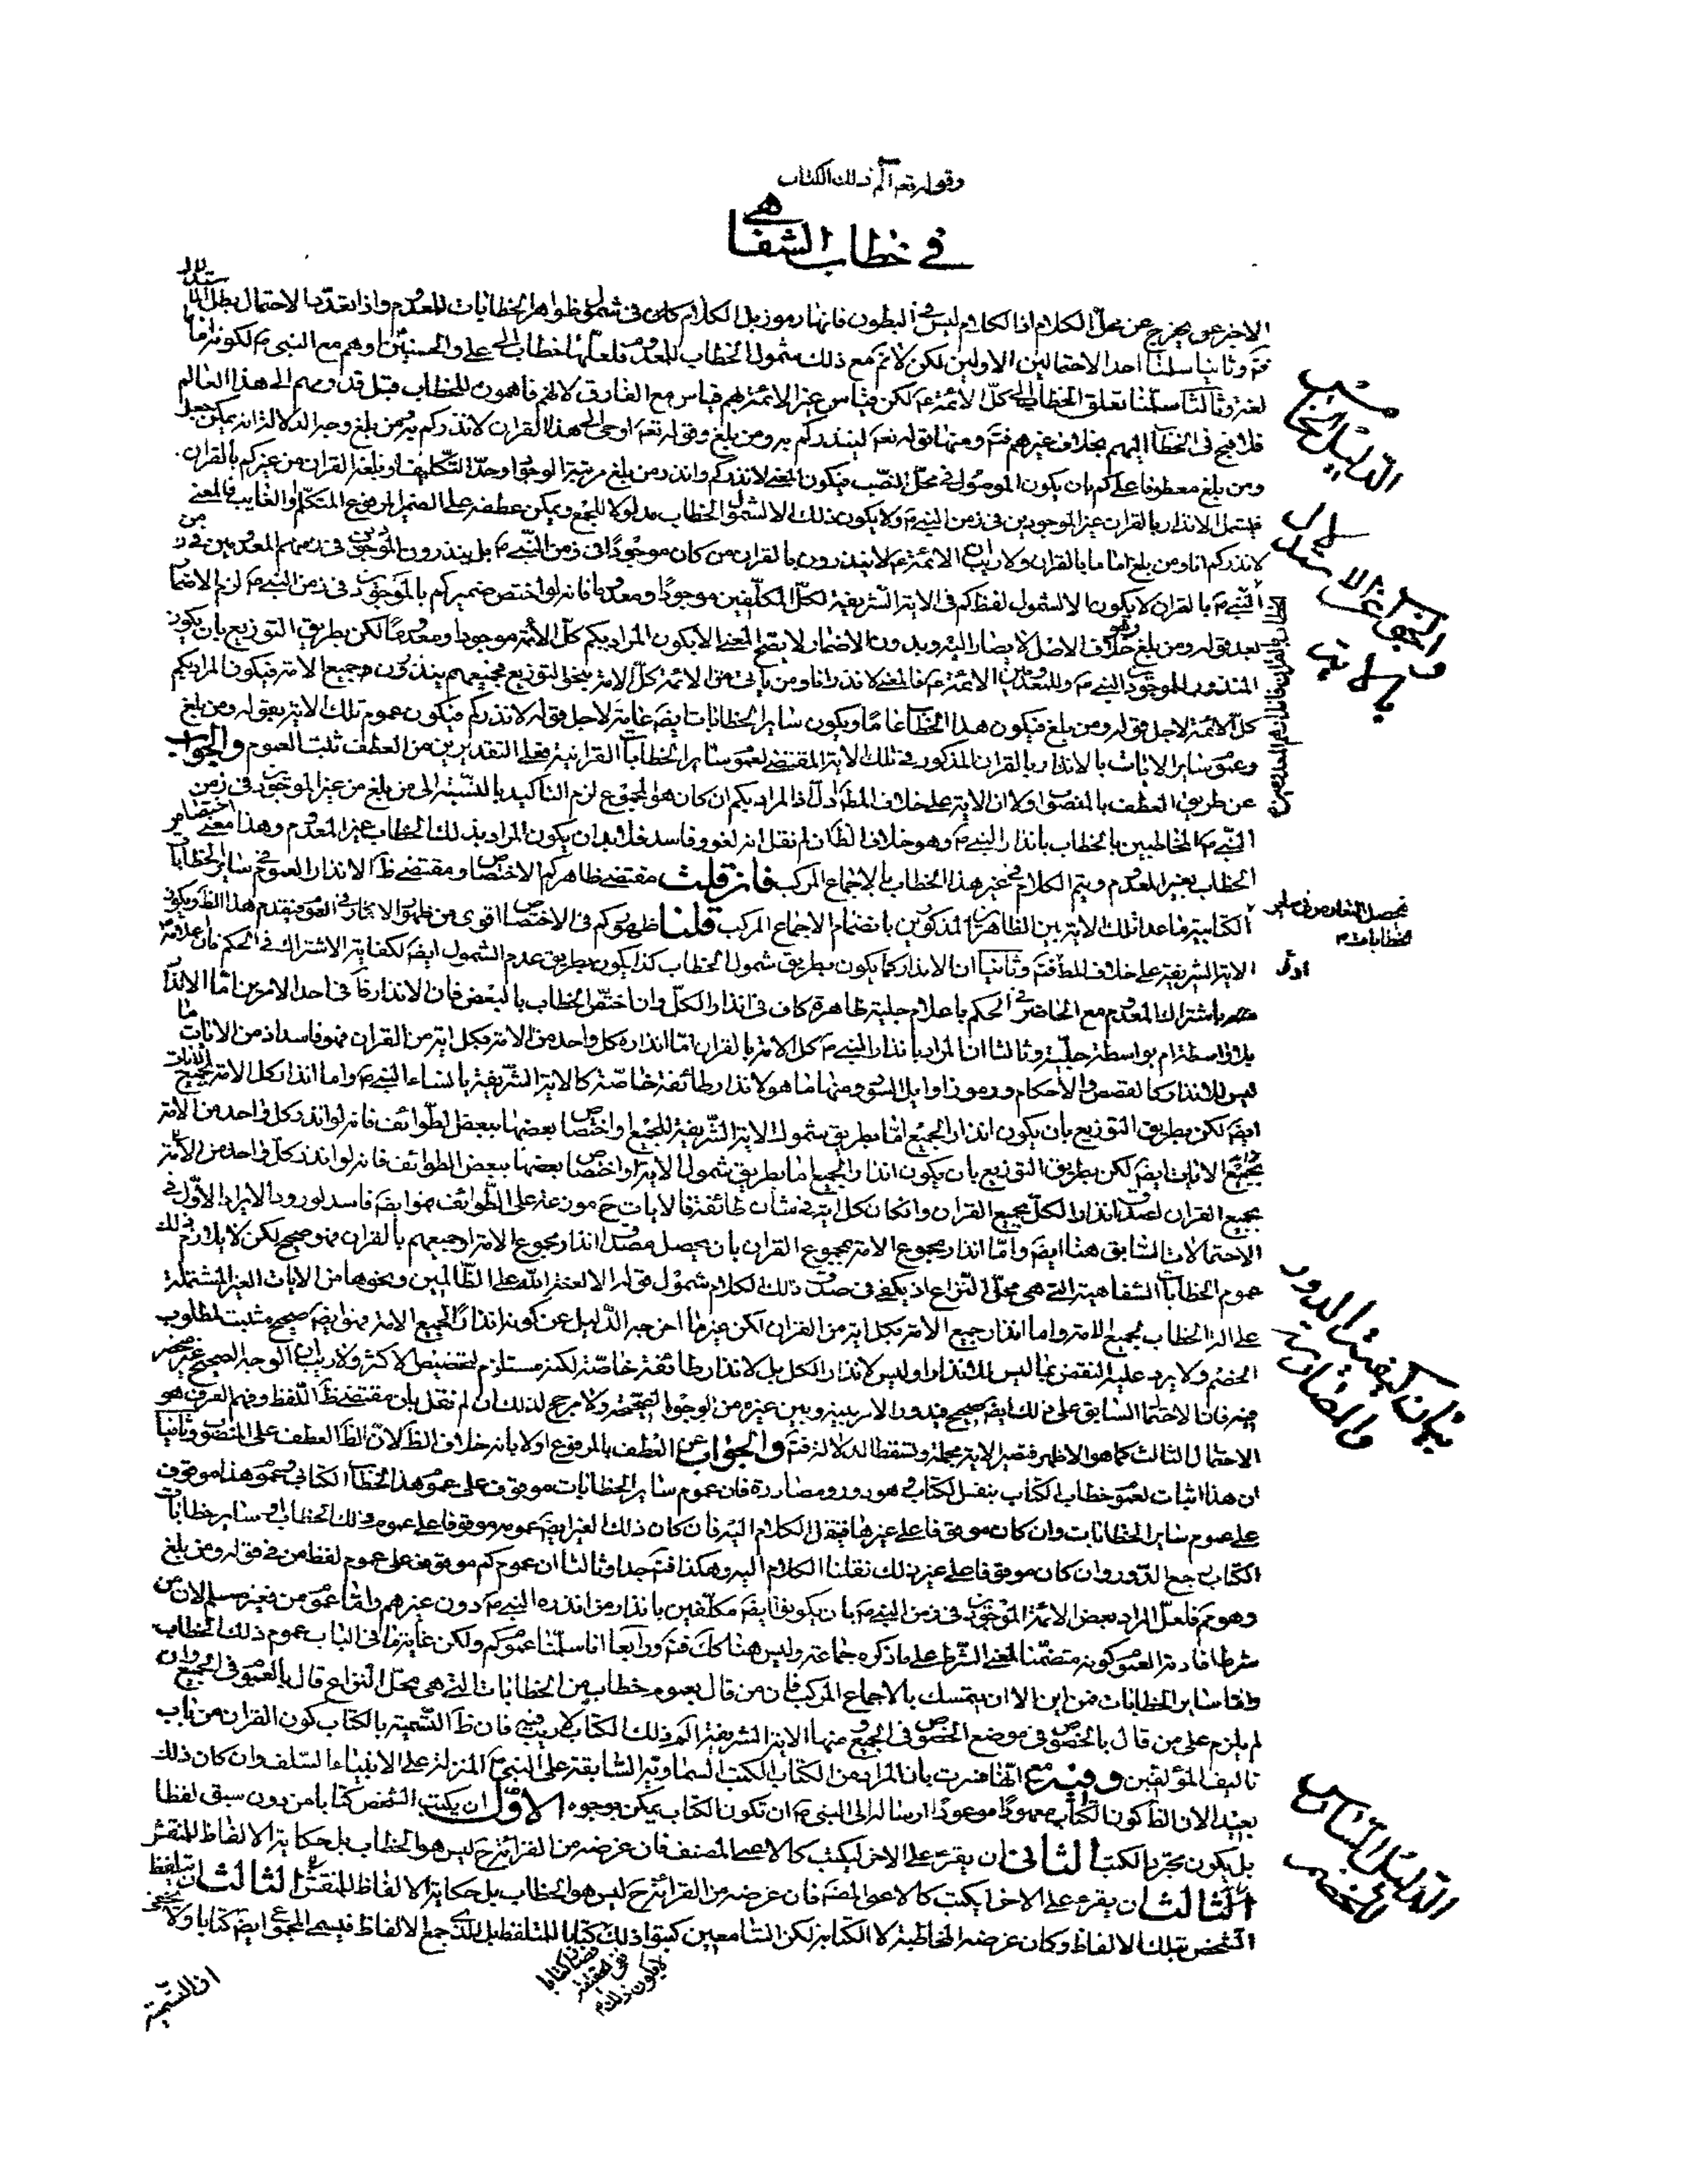 وقوله تعم آلم ذلك الكتاب
في خطاب الشفاهي
الاخير عن يخرج عن محل الكلام اذ الكلام ليس في البطون فانها رموز بل الكلام كان في شمول ظواهر الخطابات للمعدوم واذا تعدد الاحتمال بطل الاستدلال
فتم وثانيا سلمنا احد الاحتمالين الاولين لكن لانم مع ذلك شمول الخطاب للمعدوم فلعلها خطاب الى علي والحسنين او هم مع النبي م لكونه
لغز وثالثا سلمنا تعلق الخطاب الى كل الائمة ع لكن قياس غير الائمة بهم قياس مع الفارق لانهم فاهمون للخطاب قبل قدومهم الى هذا العالم
فلا قبح في الخطاب اليهم بخلاف غيرهم فتم ومنها قوله تعم لينذركم به ومن بلغ وقوله تعم اوحى الى هذا القران لانذركم به ومن بلغ وجه الدلالة انه يمكن جعل
ومن بلغ معطوفا على كم بان يكون الموصول في محل النصب فيكون المعنى لانذركم وانذر من بلغ مرتبة الوجود وحد التكليف او بلغه القران من غيركم بالقران
فيشمل الانذار بالقران غير الموجودين في زمن النبي م ولا يكون ذلك الا لشمول الخطاب مدلولا للجميع ويمكن عطفه على الضمير المرفوع المتكلم او الغايب فالمعنى
لانذركم انا ومن بلغ اماما بالقران ولا ريب ان الائمة ع لا ينذرون بالقران من كان موجودا في زمن النبي م بل ينذرون الموجودين في زمنهم المعدومين في زمن
النبي م بالقران لا يكون الا لشمول لفظ كم في الاية الشريفة لكل المكلفين موجودا ومعدوما فانه لو اختص ضمير كم بالموجودين في زمن النبي م لزم الاضمار
بعد قوله ومن بلغ وهو خلاف الاصل لا يصار اليه وبدون الاضمار لا يصح المعنى الا بكون المراد بكم كل الامة موجودا ومعدوما لكن بطريق التوزيع بان يكون
المنذر للموجودين النبي م وللمعدومين الائمة ع فالمعنى لانذر انا ومن ياتي من الائمة كل الامة بنحو التوزيع فجميعهم ينذرون جميع الامة فيكون المراد بكم
كل الامة لاجل قوله ومن بلغ فيكون هذا الخطاب عاما ويكون ساير الخطابات ايضا عامة لاجل قوله لانذركم فيكون عموم تلك الاية بقوله ومن بلغ
وعموم ساير الايات بالانذار بالقران المذكور في تلك الاية المقتضي لعموم ساير الخطابات القرانية فعلى التقديرين من العطف ثبت العموم والجواب
عن طريق العطف بالمنصوب اولا ان الاية على خلاف المط ادل اذ المراد بكم ان كان هو المجموع لزم التاكيد بالنسبة الى من بلغ من غير الموجودين في زمن
النبي م المخاطبين بالخطاب بانذار النبي م وهو خلاف الظ ان لم نقل انه لغو وفاسد فلابد ان يكون المراد بذلك الخطاب غير المعدوم وهذا معنى اختصاص
الخطاب بغير المعدوم ويتم الكلام في غير هذا الخطاب بالاجماع المركب فان قلت مقتضى ظاهر كم الاختصاص ومقتضى ظ الانذار العموم في ساير الخطابات
الكتابية ما عدا تلك الاية بين الظاهرين المذكورين بانضمام الاجماع المركب قلنا ظهور كم في الاختصاص اقوى من ظهور الانذار في العموم فيقدم هذا الظ ويكون
الاية الشريفة على خلاف المط فتم وثانيا ان الانذار كما يكون بطريق شمول الخطاب كذا يكون بطريق عدم الشمول ايضا لكفاية الاشتراك في الحكم فان اعلامه
باشتراك المعدوم مع الحاضر في الحكم باعلام جلية ظاهرة كاف في انذار الكل وان اختص الخطاب بالبعض فان الانذار كاف في احد الامرين اما الانذار
بلا واسطة ام بواسطة جلية وثالثا ان المراد بانذار النبي م كل الامة بالقران اما انذاره كل واحد من الامة بكل اية من القران فهو فاسد اذ من الايات ما
ليس للانذار كالقصص والاحكام ورموز اوايل السور ومنها ما هو لانذار طائفة خاصة كالاية الشريفة يا نساء النبي م واما انذار كل الامة بجميع الايات
ايضا لكن بطريق التوزيع بان يكون انذار الجميع اما بطريق شمول الاية الشريفة للجميع او اختصاص بعضها ببعض الطوائف فانه لو انذر كل واحد من الامة
بجميع الايات ايضا لكن بطريق التوزيع بان يكون انذار الجميع اما بطريق شمول الاية او اختصاص بعضها ببعض الطوائف فانه لو انذر كل واحد من الامة
بجميع القران لصدق انذار الكل بجميع القران وان كان كل اية في شان طائفة فالايات ح موزعة على الطوائف فهو ايضا فاسد لورود الايراد الاول في
الاحتمالات السابق هنا ايضا واما انذار مجموع الامة بمجموع القران بان يحصل مصداق انذار مجموع الامة وجميعهم بالقران فهو صحيح لكن لا يلازم ذلك
عموم الخطابات الشفاهية التي هي محل النزاع اذ يكفي في صدق ذلك الكلام شمول قوله الا لعنة الله على الظالمين ونحوها من الايات الغير المشتملة
على الة الخطاب لجميع الامة واما انذار جميع الامة بكل اية من القران لكن غير ما اخرجه الدليل عن كونه انذارا لجميع الامة فهو ايضا صحيح مثبت لمطلوب
الخصم ولا يرد عليه النقض بما ليس للانذار او ليس لانذار الكل بل لانذار طائفة خاصة لكنه مستلزم لتخصيص الاكثر ولا ريب ان الوجه الصحيح غير منحصر
فيه فان الاحتمال السابق على ذلك ايضا صحيح فيدور الامر بينه وبين غيره من الوجوه الصحيحة ولا مرجح لذلك ان لم نقل بان مقتضى ظ اللفظ وفهم العرف هو
الاحتمال الثالث كما هو الاظهر فتصير الاية مجملة وتسقط الدلالة فتم والجواب عن العطف بالمرفوع اولا بانه خلاف الظ لان الظ العطف على المنصوب وثانيا
ان هذا اثبات لعموم خطاب الكتاب بنفس الكتاب وهو دور ومصادرة فان عموم ساير الخطابات موقوف على عموم هذا الخطاب الكتابي وعموم هذا موقوف
على عموم ساير الخطابات وان كان موقوفا على غيرها فننقل الكلام اليه فان كان ذلك الغير ايضا عمومه موقوفا على عموم ذلك الخطاب او ساير خطابات
الكتاب جمع الدور وان كان موقوفا على غير ذلك نقلنا الكلام اليه وهكذا فتم جدا وثالثا ان عموم كم موقوف على عموم لفظ من في قوله ومن بلغ
وهو مم فلعل المراد بعض الائمة الموجودين في زمن النبي م بان يكونوا ايضا مكلفين بانذار من انذره النبي م دون غيرهم واما عموم من فغير مسلم لان من
شرط افادته العموم كونه متضمنا لمعنى الشرط على ما ذكره جماعة وليس هنا كك فتم ورابعا انا سلمنا عموم كم ولكن غاية ما في الباب عموم ذلك الخطاب
واما ساير الخطابات فمن اين الا ان يتمسك بالاجماع المركب فان من قال بعموم خطاب من الخطابات التي هي محل النزاع قال بالعموم في الجميع وان
لم يلزم على من قال بالخصوص في موضع الخصوص في الجميع ومنها الاية الشريفة الم ذلك الكتاب لا ريب فيه فان ظ التسمية بالكتاب كون القران من باب
تاليف المؤلفين وفيه مع انها فسرت بان المراد من الكتاب الكتب السماوية السابقة على النبي المنزلة على الانبياء السلف وان كان ذلك
بعيدا لان الظ كون الكتاب معهودا موعودا ارساله الى النبي م ان تكون الكتاب يمكن بوجوه الاول ان يكتب الشخص كتابا من دون سبق لفظ
بل يكون مجرد الكتب الثاني ان يقرء على الاخر ليكتب كالاعمى المصنف فان غرضه من القرائة ح ليس هو الخطاب بل حكاية الالفاظ للنقش
الثالث ان يقرء على الاخر ليكتب كالاعمى المصنف فان غرضه من القرائة ح ليس هو الخطاب بل حكاية الالفاظ للنقش الثالث ان يتلفظ
الشخص بتلك الالفاظ وكان غرضه المخاطبة لا الكتابة لكن السامعين كتبوا ذلك كتابا للمتلفظ بل للذي جمع الالفاظ فيسمى المجموع ايضا كتابا ولا يخفى
ان التسمية
الدليل الخامس
والجواب عن الاستدلال
بالاية
تحصيل التعارض في ساير
الخطابات م
بيان كيفية الدور
والمصادرة
الدليل السادس
للخصم